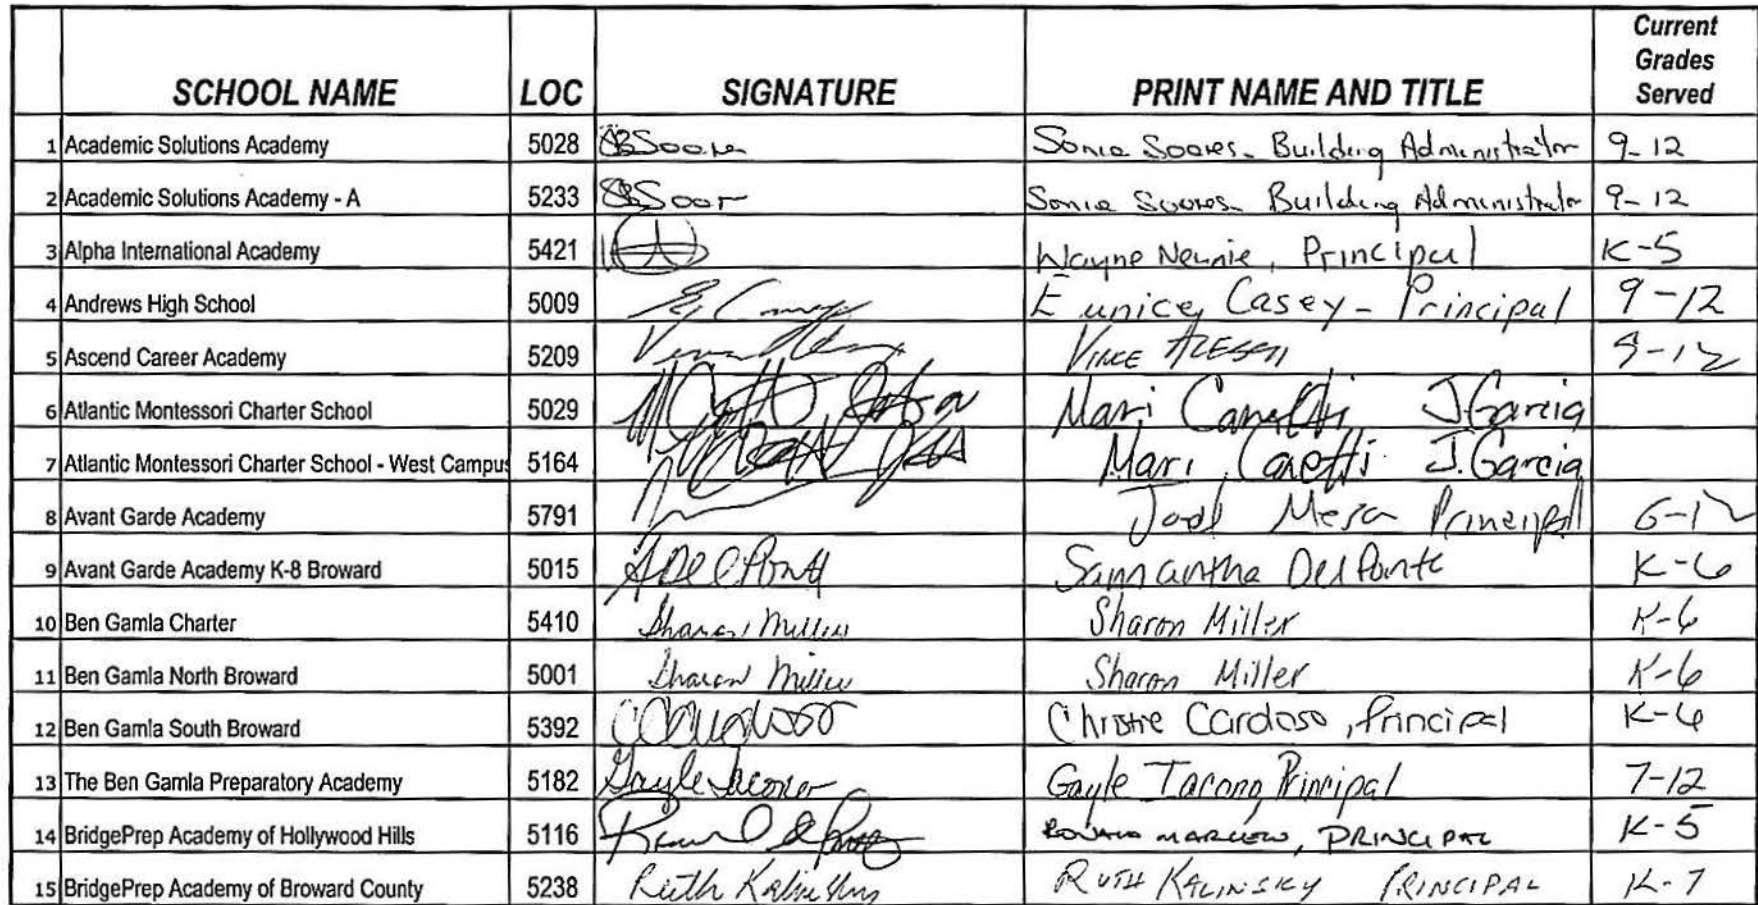 SCHOOL NAME LOC SIGNATURE PRINT NAME AND TITLE Current Grades Served
1 Academic Solutions Academy 5028 Sonia Soares - Building Administrator 9-12
2 Academic Solutions Academy - A 5233 Sonia Soares - Building Administrator 9-12
3 Alpha International Academy 5421 Wayne Neunie, Principal K-5
4 Andrews High School 5009 Eunice Casey - Principal 9-12
5 Ascend Career Academy 5209 Vince Alessi 9-12
6 Atlantic Montessori Charter School 5029 Mari Canetti J.Garcia
7 Atlantic Montessori Charter School - West Campus 5164 Mari Canetti J.Garcia
8 Avant Garde Academy 5791 Mesa Principal 6-12
9 Avant Garde Academy K-8 Broward 5015 Samantha DelPonte K-6
10 Ben Gamla Charter 5410 Sharon Miller Sharon Miller K-6
11 Ben Gamla North Broward 5001 Sharon Miller Sharon Miller K-6
12 Ben Gamla South Broward 5392 Christie Cardoso, Principal K-6
13 The Ben Gamla Preparatory Academy 5182 Gayle Gayle Principal 7-12
14 BridgePrep Academy of Hollywood Hills 5116 PRINCIPAL K-5
15 BridgePrep Academy of Broward County 5238 Ruth Kalinsky RUTH KALINSKY PRINCIPAL K-7